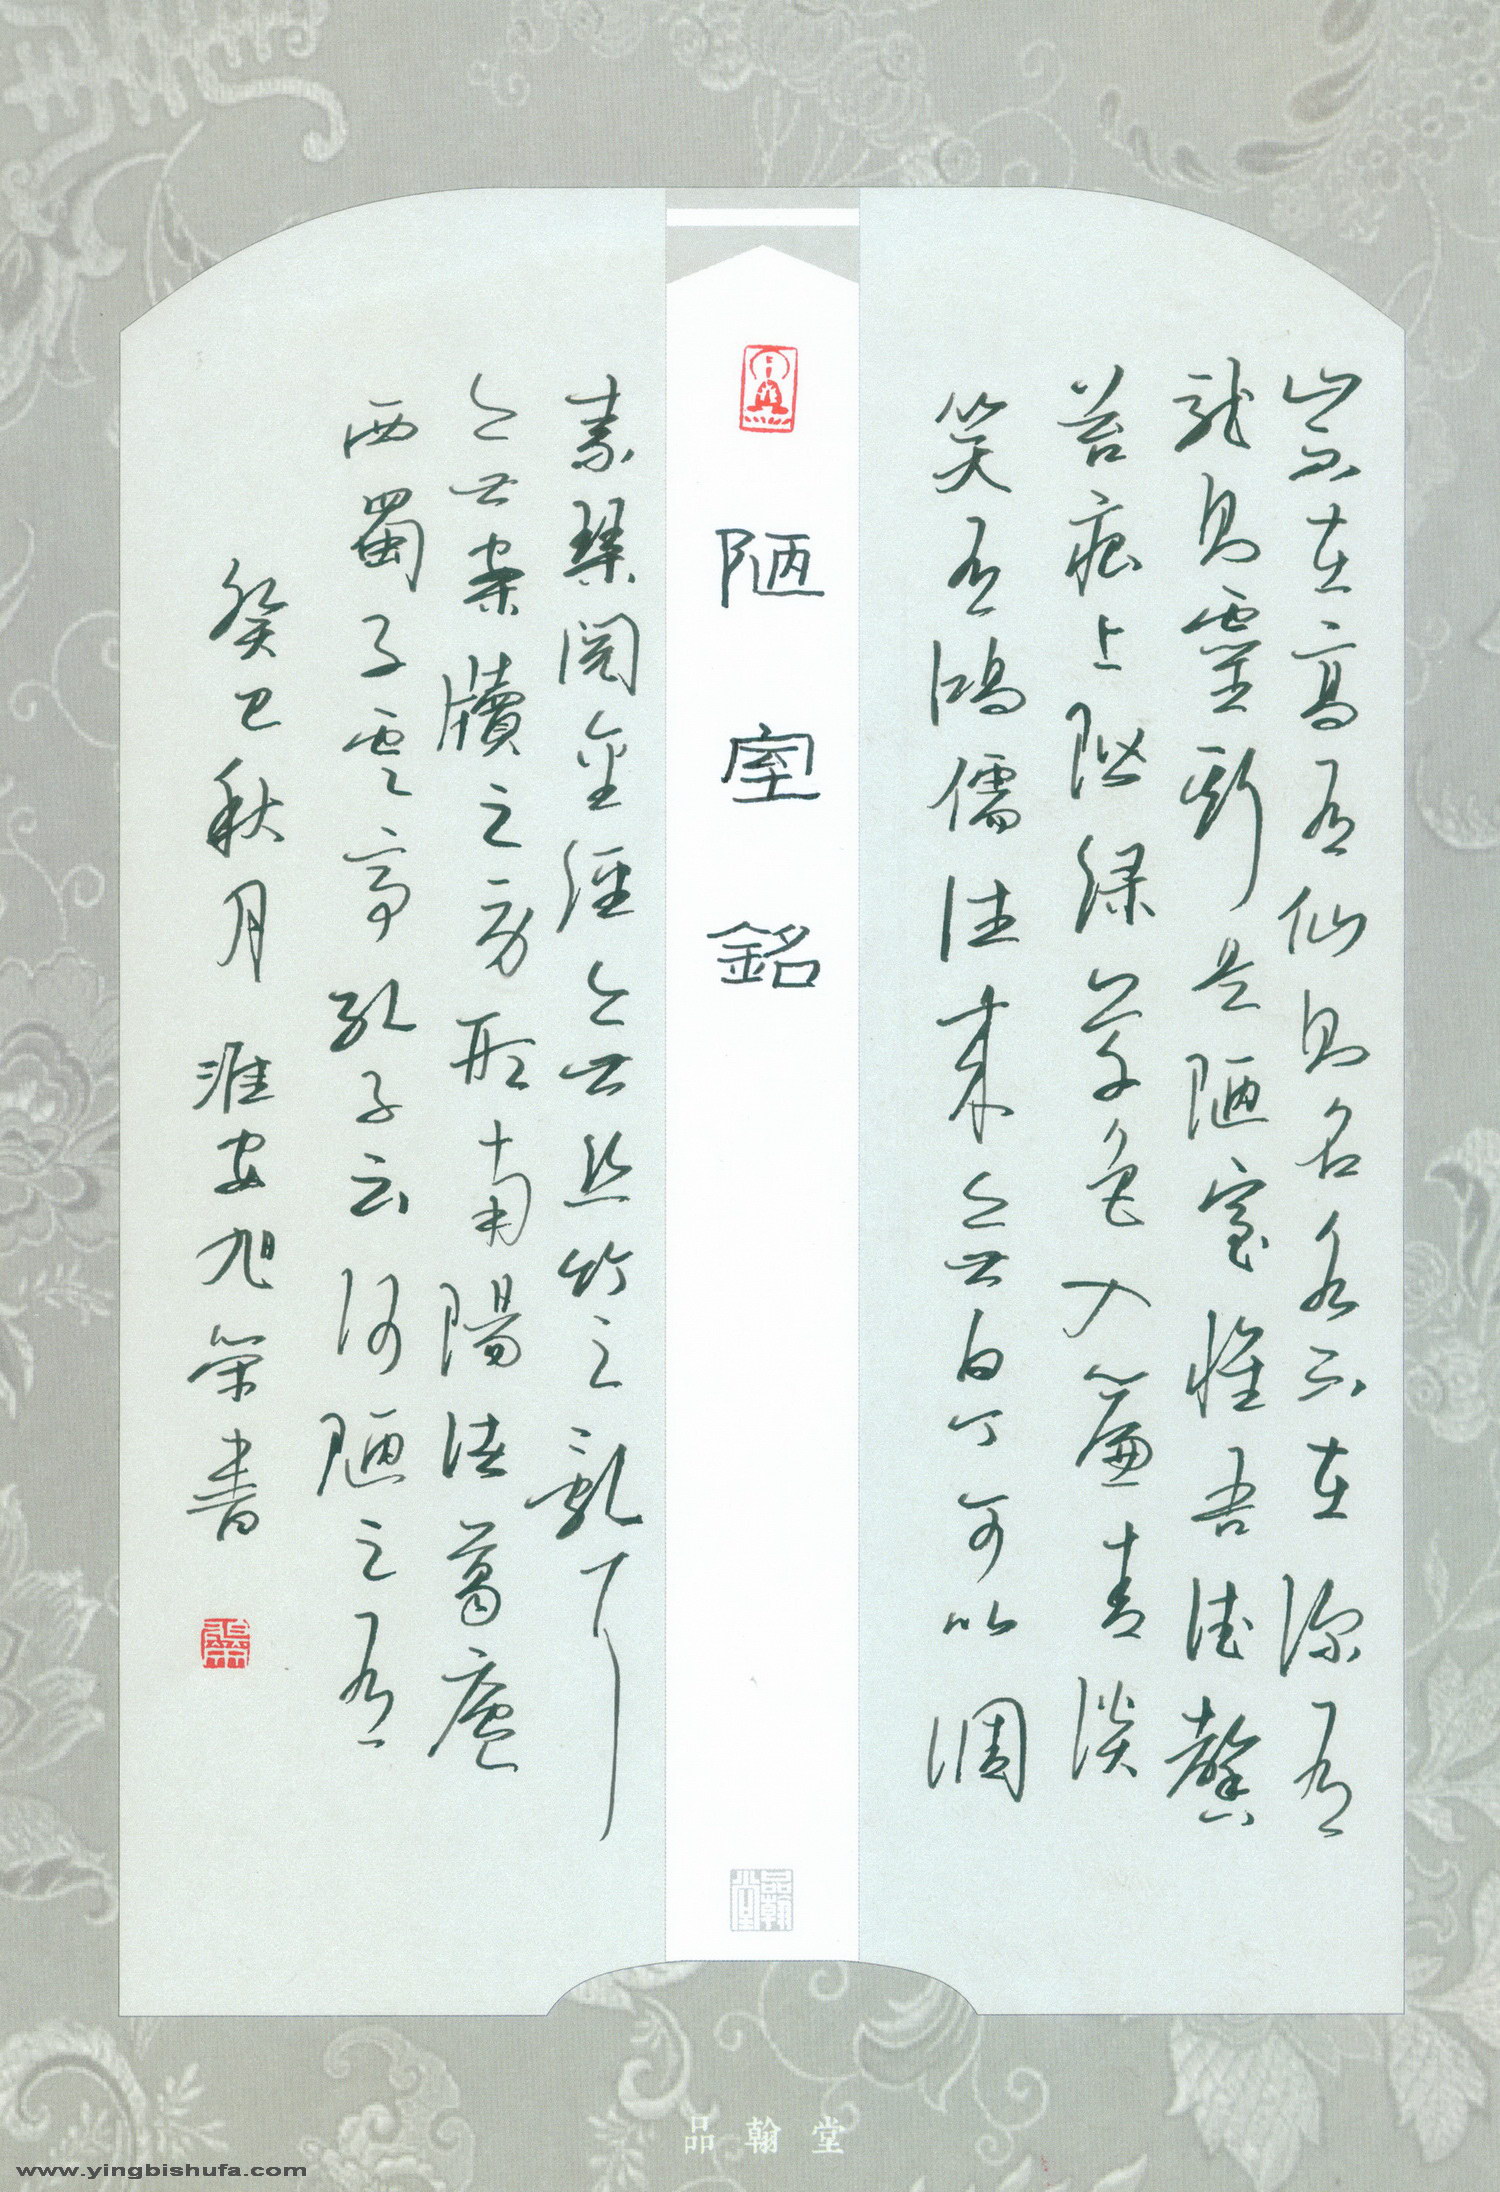 山不在高有仙則名水不在深有
龍則靈斯是陋室惟吾德馨
苔痕上階綠草色入簾青談
笑有鴻儒往來無白丁可以調
陋室銘
品翰堂
素琴閱金經無丝竹之亂耳
無案牘之勞形南陽諸葛廬
西蜀子雲亭孔子云何陋之有
癸巳秋月 淮安旭荣書
品翰堂
www.yingbishufa.com